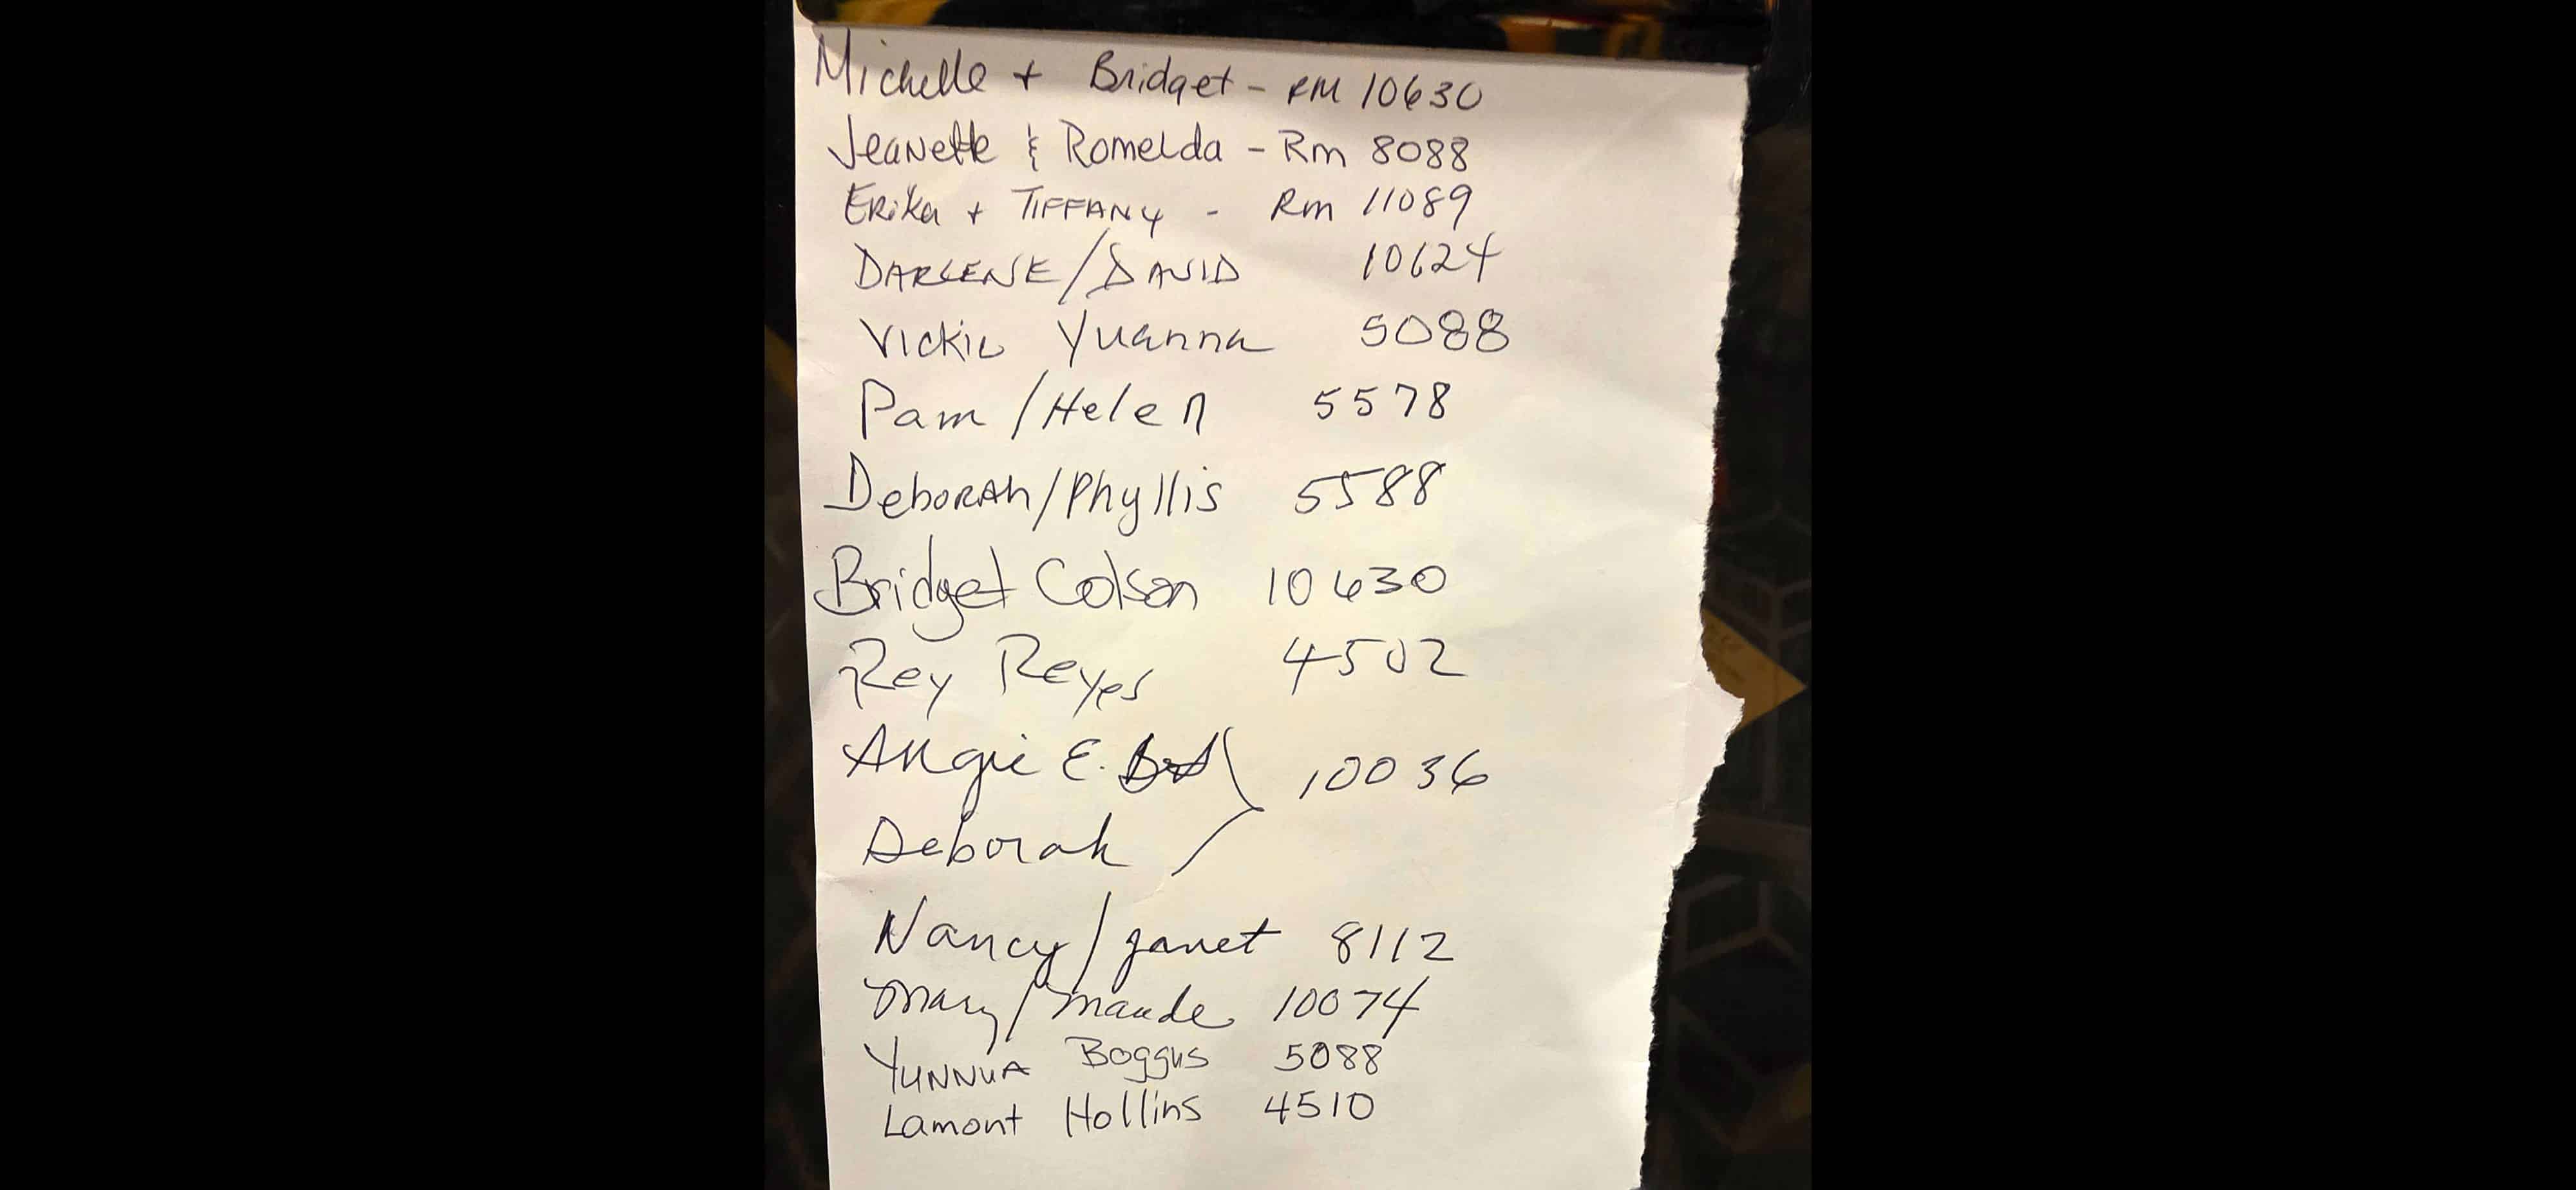 Michelle + Bridget - RM 10630
Jeanette & Romelda - Rm 8088
Erika + TIFFANY - Rm 11089
DARLENE/DAVID 10624
Vickie Yuanna 5088
Pam/Helen 5578
Deborah/Phyllis 5588
Bridget Colson 10630
Rey Reyes 4502
Angie E. 10036
Deborah
Nancy/Janet 8112
Mary/Maude 10074
YUNNUA Boggus 5088
Lamont Hollins 4510